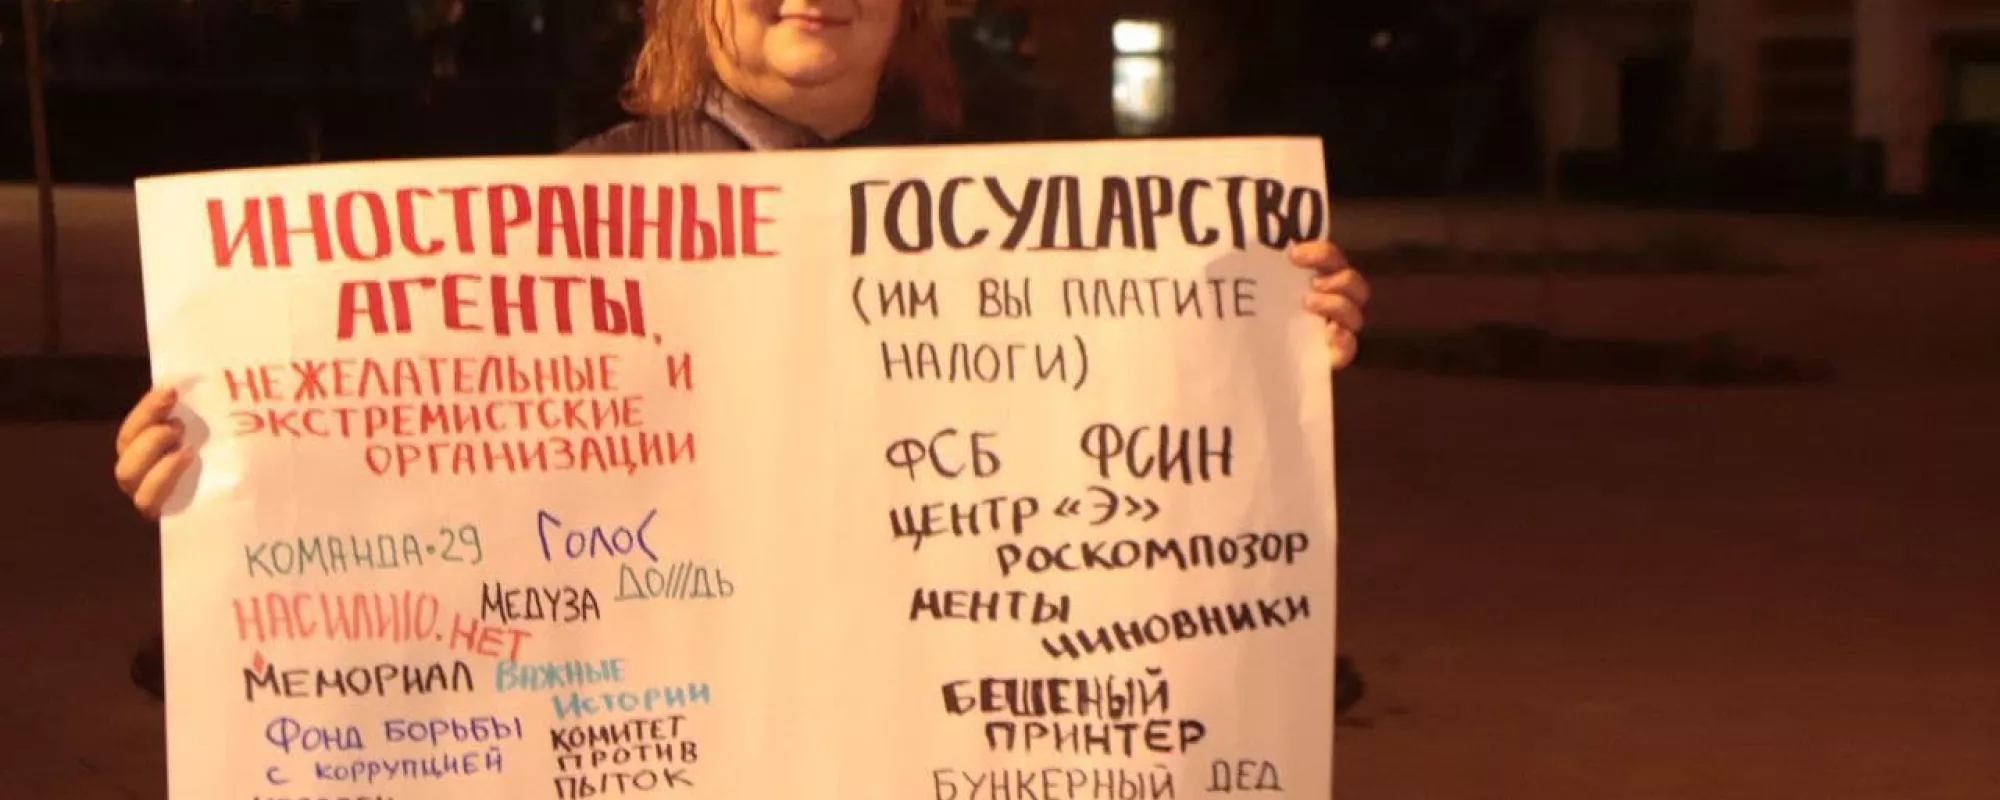 ИНОСТРАННЫЕ
АГЕНТЫ,
НЕЖЕЛАТЕЛЬНЫЕ И
ЭКСТРЕМИСТСКИЕ
ОРГАНИЗАЦИИ
КОМАНДА·29
ГОЛОС
НАСИЛИЮ.НЕТ
МЕДУЗА
ДО///ДЬ
МЕМОРИАЛ
ВАЖНЫЕ
ИСТОРИИ
ФОНД БОРЬБЫ
С КОРРУПЦИЕЙ
КОМИТЕТ
ПРОТИВ
ПЫТОК
ГОСУДАРСТВО
(ИМ ВЫ ПЛАТИТЕ
НАЛОГИ)
ФСБ ФСИН
ЦЕНТР «Э»
РОСКОМПОЗОР
МЕНТЫ
ЧИНОВНИКИ
БЕШЕНЫЙ
ПРИНТЕР
БУНКЕРНЫЙ ДЕД